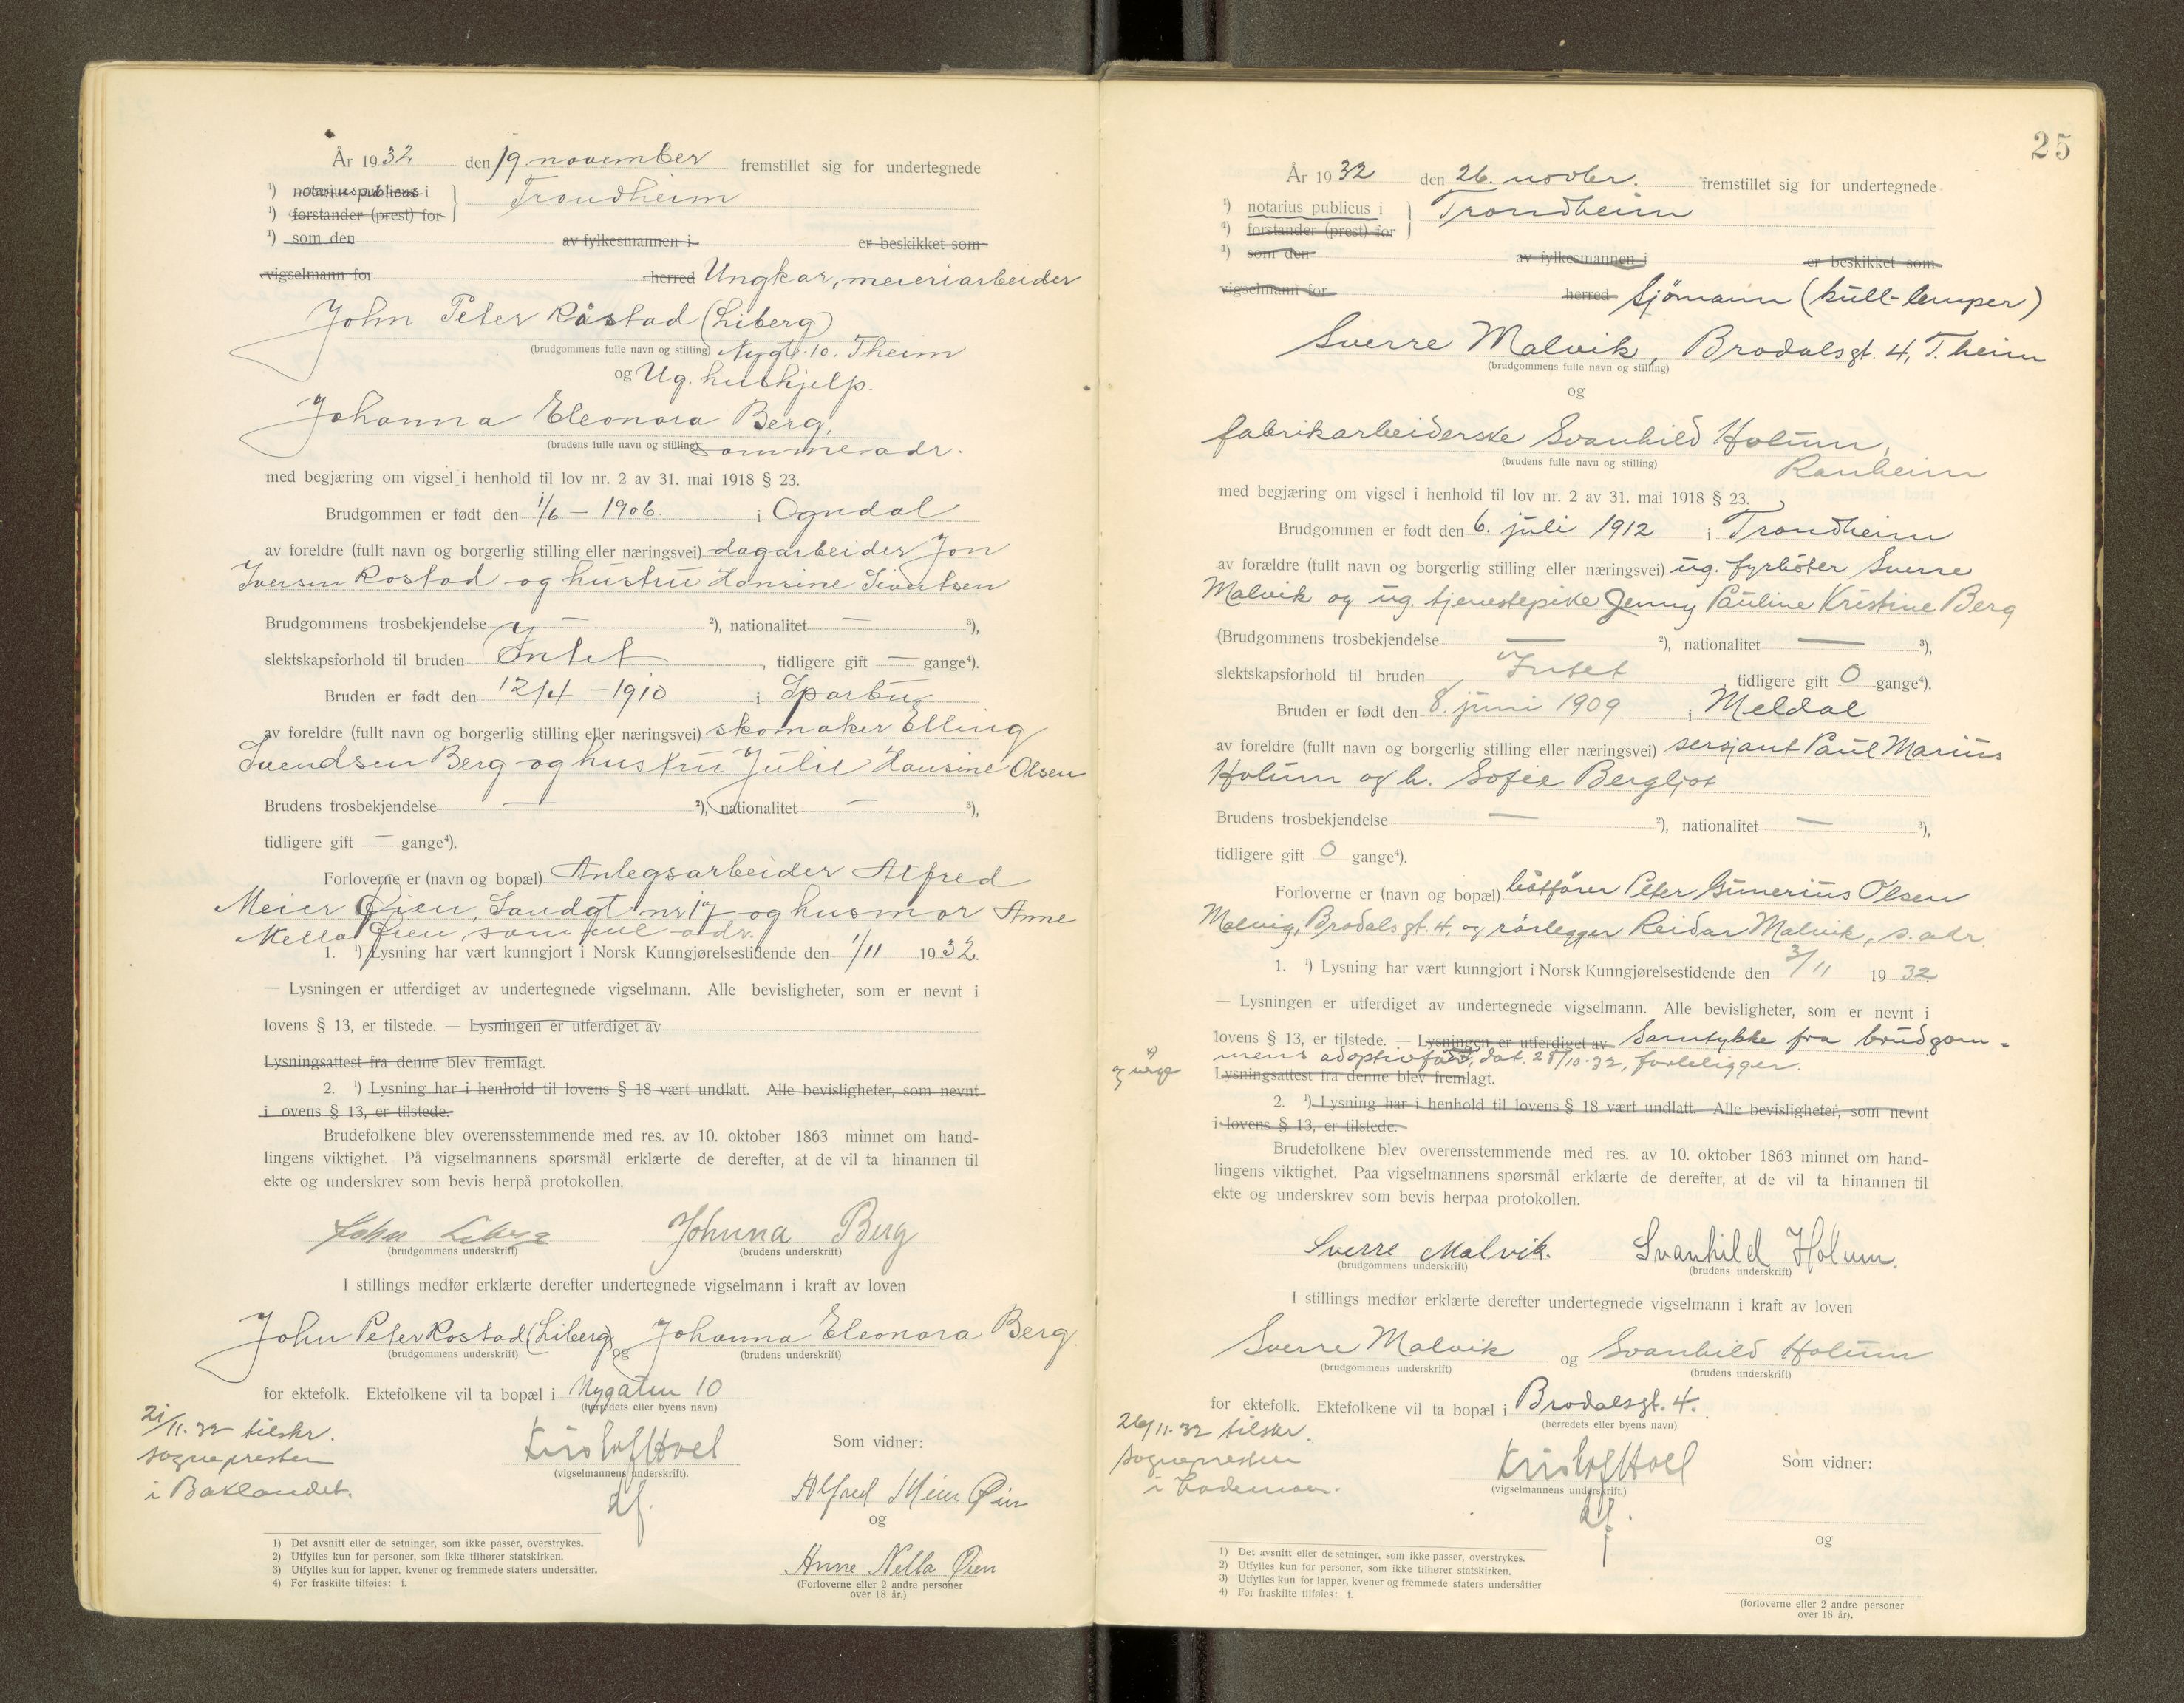 År 1932 den 19. november fremstillet sig for undertegnede
¹) notarius publicus i
Trondheim
¹) forstander (prest) for
¹) som den av fylkesmannen i er beskikket som
vigselmann for herred Ungkar, meieriarbeider
John Peter Råstad (Liberg)
(brudgommens fulle navn og stilling) Nygt. 10. Theim
og Ug. hushjelp.
Johanna Eleonora Berg,
(brudens fulle navn og stilling) samme adr.
med begjæring om vigsel i henhold til lov nr. 2 av 31. mai 1918 § 23.
Brudgommen er født den 1/6 - 1906. i Ogndal
av foreldre (fullt navn og borgerlig stilling eller næringsvei) dagarbeider Jon
Iversen Rostad og hustru Hansine Sivertsen
Brudgommens trosbekjendelse — ²), nationalitet — ³),
slektskapsforhold til bruden Intet, tidligere gift — gange⁴).
Bruden er født den 12/4 - 1910 i Sparbu
av foreldre (fullt navn og borgerlig stilling eller næringsvei) skomaker Elling
Svendsen Berg og hustru Julie Hansine Olsen
Brudens trosbekjendelse — ²), nationalitet — ³),
tidligere gift — gange⁴).
Forloverne er (navn og bopæl) Anlegsarbeider Alfred
Meier Øien, Sandgt nr 17 og husmor Anne
Nella Øien, samme adr.
1. ¹) Lysning har vært kunngjort i Norsk Kunngjørelsestidende den 1/11 1932.
— Lysningen er utferdiget av undertegnede vigselmann. Alle bevisligheter, som er nevnt i
lovens § 13, er tilstede. — Lysningen er utferdiget av
Lysningsattest fra denne blev fremlagt.
2. ¹) Lysning har i henhold til lovens § 18 vært undlatt. Alle bevisligheter, som nevnt
i ovens § 13, er tilstede.
Brudefolkene blev overensstemmende med res. av 10. oktober 1863 minnet om hand-
lingens viktighet. På vigselmannens spørsmål erklærte de derefter, at de vil ta hinannen til
ekte og underskrev som bevis herpå protokollen.
John Liberg Johanna Berg
(brudgommens underskrift) (brudens underskrift)
I stillings medfør erklærte derefter undertegnede vigselmann i kraft av loven
John Peter Rostad (Liberg) og Johanna Eleonora Berg
(brudgommens underskrift) (brudens underskrift)
for ektefolk. Ektefolkene vil ta bopæl i Nygaten 10
(herredets eller byens navn)
21/11.32 tilskr.
sognepresten
i Baklandet.
Krislof Hoel
(vigselmannens underskrift).
df.
Som vidner:
Alfred Meier Øien
og
Anne Nella Øien
(Forloverne eller 2 andre personer
over 18 år.)
1) Det avsnitt eller de setninger, som ikke passer, overstrykes.
2) Utfylles kun for personer, som ikke tilhører statskirken.
3) Utfylles kun for lapper, kvener og fremmede staters undersåtter.
4) For fraskilte tilføies: f.
25
År 1932 den 26. novbr. fremstillet sig for undertegnede
¹) notarius publicus i
Trondheim
¹) forstander (prest) for
¹) som den av fylkesmannen i er beskikket som
vigselmann for herred Sjömann (kull-lemper)
Sverre Malvik, Brodalsgt. 4, T.heim
(brudgommens fulle navn og stilling)
og
fabrikarbeiderske Svanhild Holum,
(brudens fulle navn og stilling) Ranheim
med begjæring om vigsel i henhold til lov nr. 2 av 31. mai 1918 § 23.
Brudgommen er født den 6. juli 1912 i Trondheim
av forældre (fullt navn og borgerlig stilling eller næringsvei) ug. fyrböter Sverre
Malvik og ug. tjenestepike Jenny Pauline Kristine Berg
(Brudgommens trosbekjendelse — ²), nationalitet — ³),
slektskapsforhold til bruden Intet, tidligere gift 0 gange⁴).
Bruden er født den 8. juni 1909 i Meldal
av foreldre (fullt navn og borgerlig stilling eller næringsvei) sersjant Paul Marius
Holum og h. Sofie Bergljot
Brudens trosbekjendelse — ²), nationalitet — ³),
tidligere gift 0 gange⁴).
Forloverne er (navn og bopæl) båtförer Peter Gunerius Olsen
Malvig, Brodalsgt. 4, og rörlegger Reidar Malvik, s. adr.
1. ¹) Lysning har vært kunngjort i Norsk Kunngjørelsestidende den 3/11 1932
— Lysningen er utferdiget av undertegnede vigselmann. Alle bevisligheter, som er nevnt i
lovens § 13, er tilstede. — Lysningen er utferdiget av Samtykke fra brudgom-
mens adoptivfar, dat. 28/10-32, foreligger.
og verge
Lysningsattest fra denne blev fremlagt.
2. ¹) Lysning har i henhold til lovens § 18 vært undlatt. Alle bevisligheter, som nevnt
i lovens § 13, er tilstede.
Brudefolkene blev overensstemmende med res. av 10. oktober 1863 minnet om hand-
lingens viktighet. Paa vigselmannens spørsmål erklærte de derefter, at de vil ta hinannen til
ekte og underskrev som bevis herpaa protokollen.
Sverre Malvik. Svanhild Holum.
(brudgommens underskrift) (brudens underskrift)
I stillings medfør erklærte derefter undertegnede vigselmann i kraft av loven
Sverre Malvik og Svanhild Holum
(brudgommens underskrift) (brudens underskrift)
for ektefolk. Ektefolkene vil ta bopæl i Brodalsgt. 4.
(herredets eller byens navn)
26/11.32 tilskr.
sognepresten
i Lademoen.
Krislof Hoel
(vigselmannens underskrift.)
df.
Som vidner:
og
(forloverne eller 2 andre personer
over 18 år).
1) Det avsnitt eller de setninger, som ikke passer, overstrykes.
2) Utfylles kun for personer, som ikke tilhører statskirken.
3) Utfylles kun for lapper, kvener og fremmede staters undersåtter
4) For fraskilte tilføies: f.